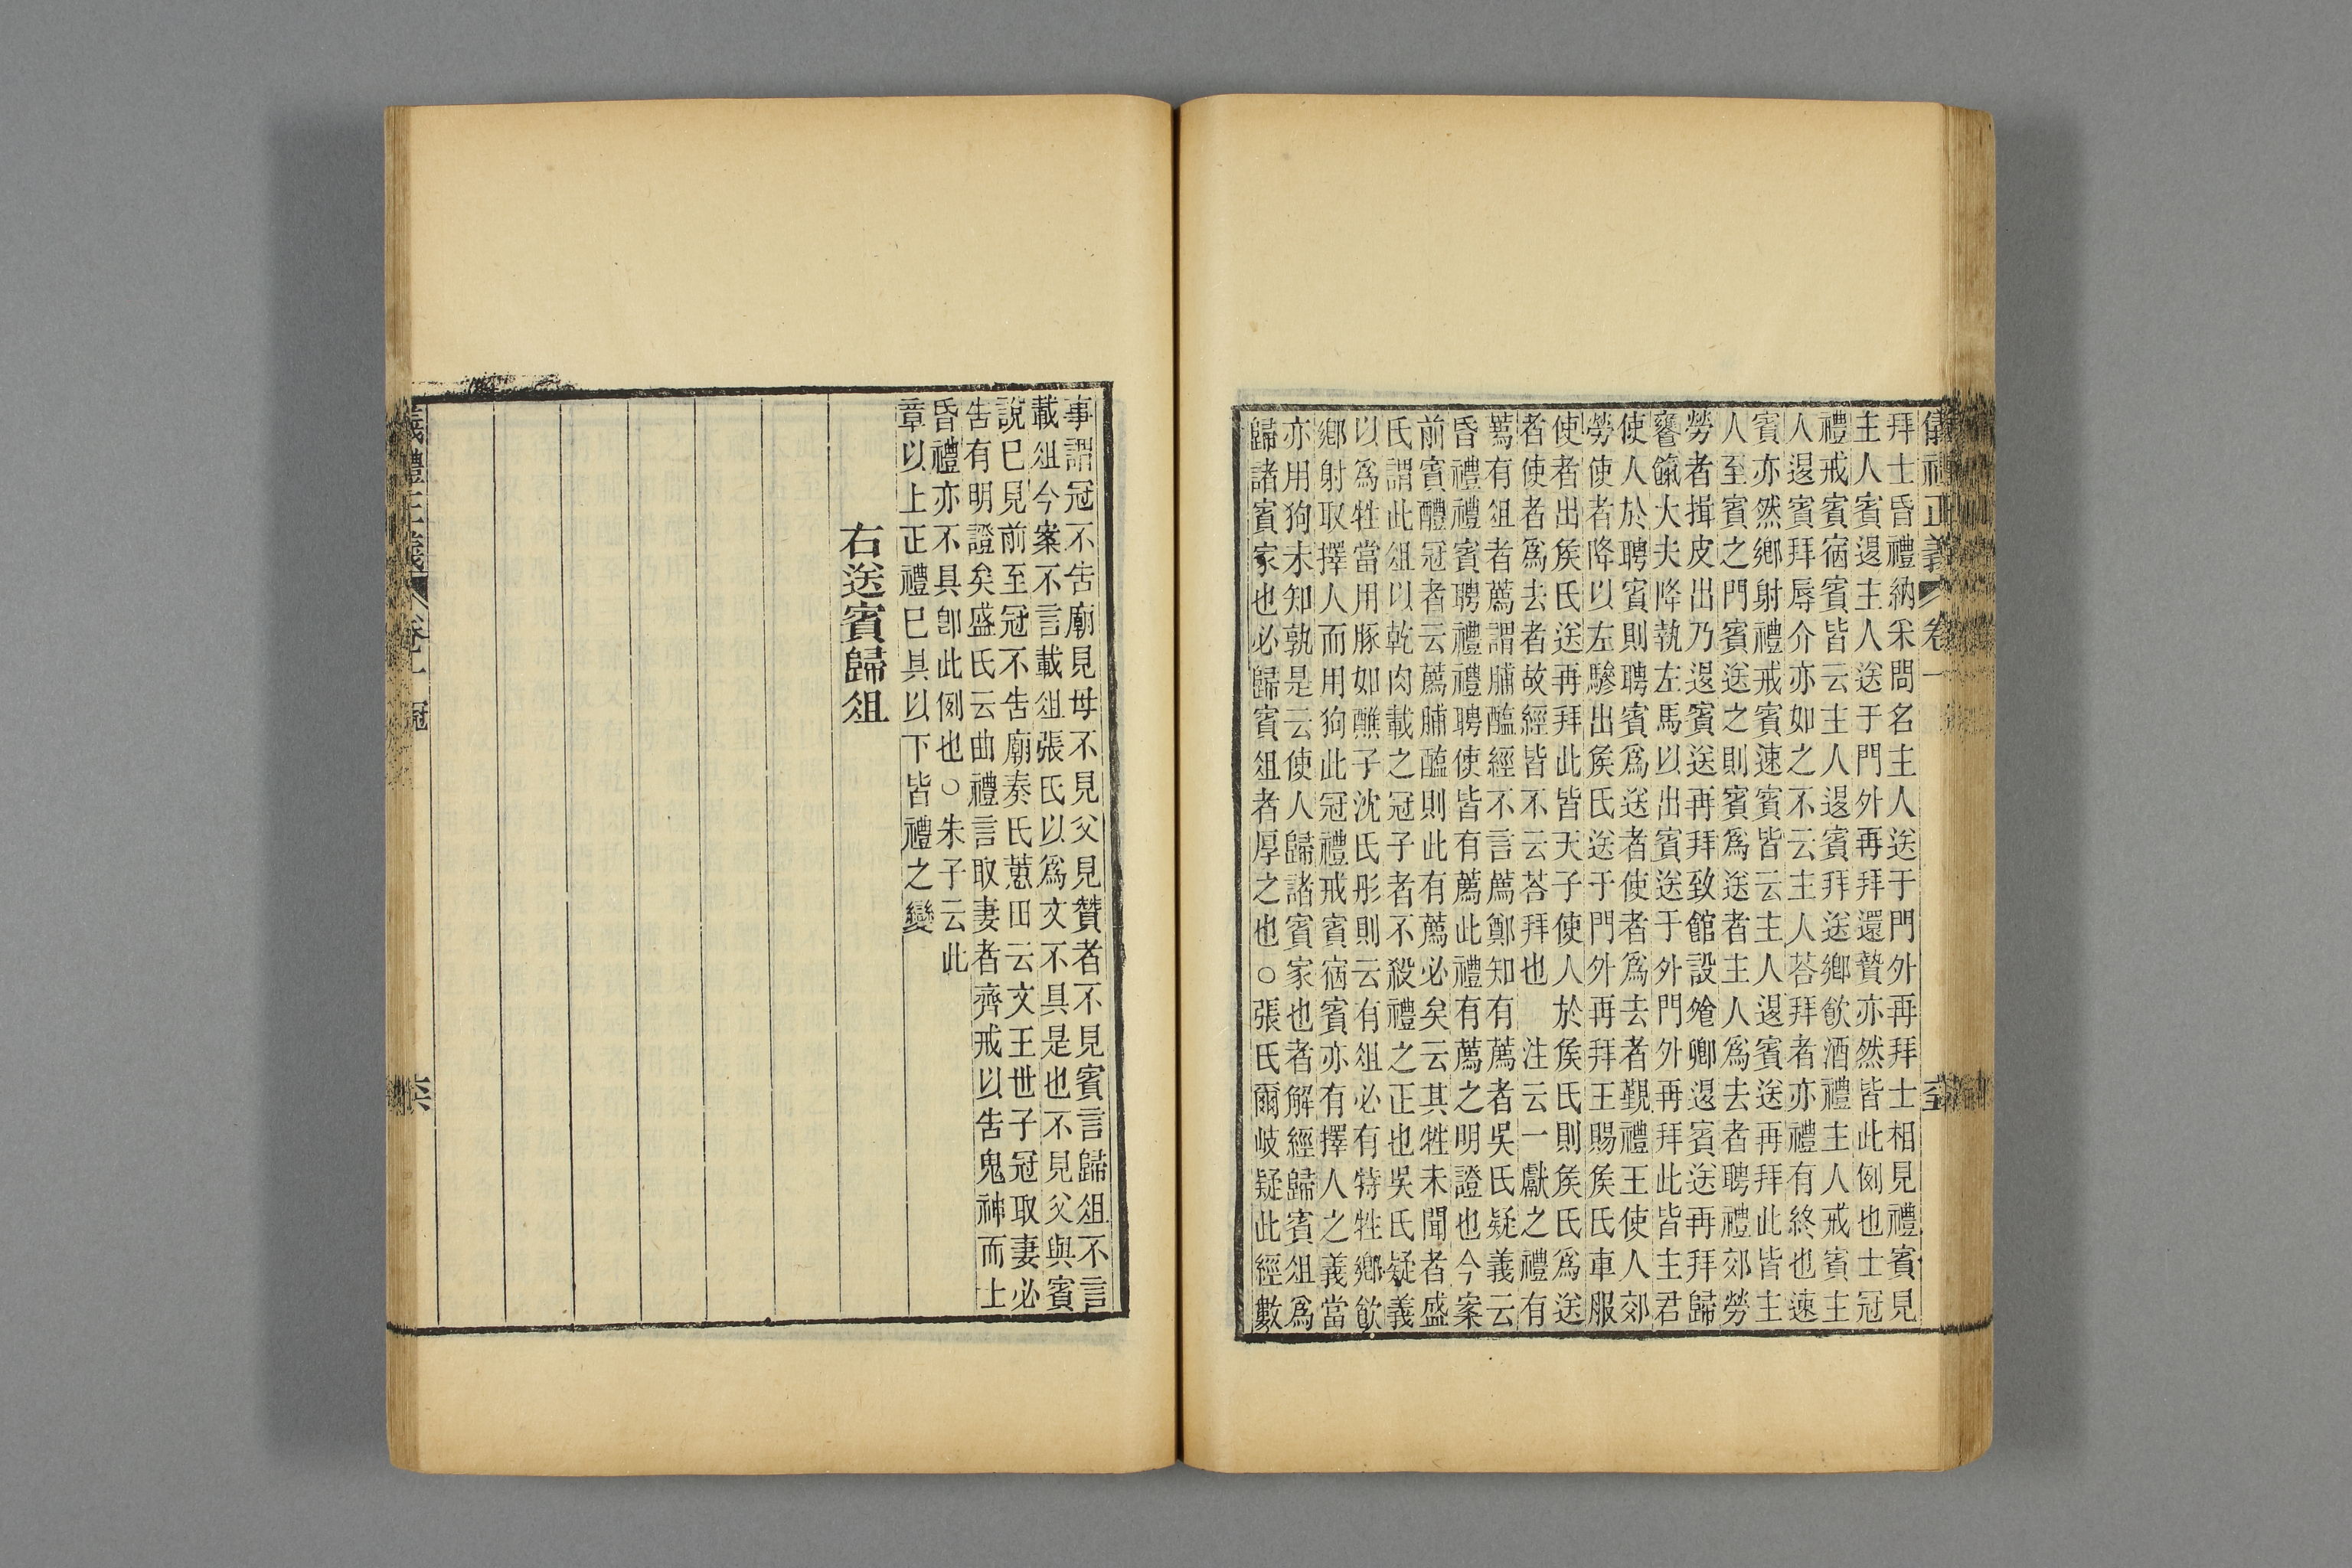 儀禮正義 卷一
拜士昏禮納采問名主人送于門外再拜士相見禮賓見
主人賓退主人送于門外再拜還贄亦然皆此例也士冠
禮戒賓宿賓皆云主人退賓拜送鄉飲酒禮主人戒賓主
人退賓拜辱介亦如之不云主人荅拜者亦禮有終也速
賓亦然鄉射禮戒賓速賓皆云主人退賓送再拜此皆主
人至賓之門賓送之則賓爲送者主人爲去者聘禮郊勞
勞者揖皮出乃退賓送再拜致館設飧卿退賓送再拜歸
饔餼大夫降執左馬以出賓送于外門外再拜此皆主君
使人於聘賓則聘賓爲送者使者爲去者覲禮王使人郊
勞使者降以左驂出矦氏送于門外再拜王賜矦氏車服
使者出矦氏送再拜此皆天子使人於矦氏則矦氏爲送
者使者爲去者故經皆不云荅拜也　注云一獻之禮有
薦有俎者薦謂脯醢經不言薦鄭知有薦者吳氏疑義云
昏禮禮賓聘禮禮聘使皆有薦此禮有薦之明證也今案
前賓醴冠者云薦脯醢則此有薦必矣云其牲未聞者盛
氏謂此俎以乾肉載之冠子者不殺禮之正也吳氏疑義
以爲牲當用豚如醮子沈氏彤則云有俎必有特牲鄉飲
鄉射取擇人而用狗此冠禮戒賓宿賓亦有擇人之義當
亦用狗未知孰是云使人歸諸賓家也者解經歸賓俎爲
歸諸賓家也必歸賓俎者厚之也○張氏爾岐疑此經數
事謂冠不告廟見母不見父見贊者不見賓言歸俎不言
載俎今案不言載俎張氏以爲文不具是也不見父與賓
說已見前至冠不告廟秦氏蕙田云文王世子冠取妻必
告有明證矣盛氏云曲禮言取妻者齊戒以告鬼神而上
昏禮亦不具卽此例也○朱子云此
章以上正禮已具以下皆禮之變
右送賓歸俎
儀禮正義 卷一 冠